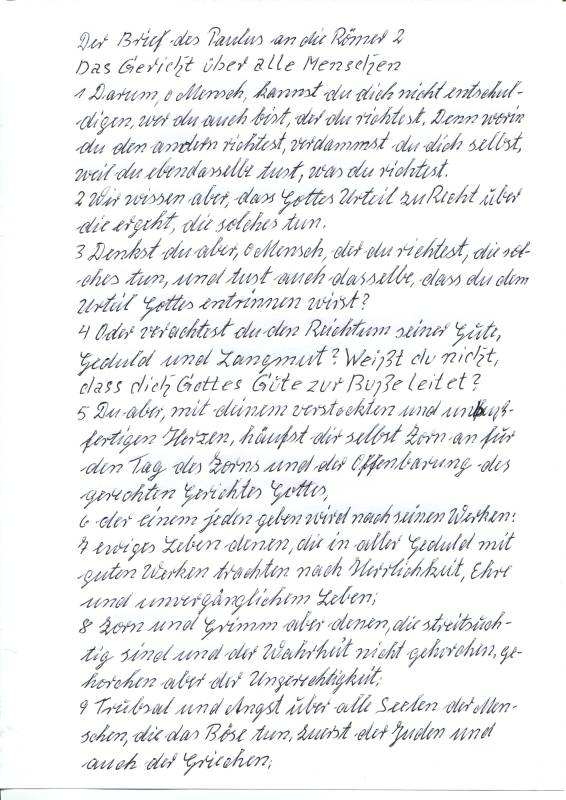 Der Brief des Paulus an die Römer 2
Das Gericht über alle Menschen
1 Darum, o Mensch, kannst du dich nicht entschul-
digen, wer du auch bist, der du richtest. Denn worin
du den andern richtest, verdammst du dich selbst,
weil du ebendasselbe tust, was du richtest.
2 Wir wissen aber, dass Gottes Urteil zu Recht über
die ergeht, die solches tun.
3 Denkst du aber, o Mensch, der du richtest, die sol-
ches tun, und tust auch dasselbe, dass du dem
Urteil Gottes entrinnen wirst?
4 Oder verachtest du den Reichtum seiner Güte,
Geduld und Langmut? Weißt du nicht,
dass dich Gottes Güte zur Buße leitet?
5 Du aber, mit deinem verstockten und unbuß-
fertigen Herzen, häufst dir selbst Zorn an für
den Tag des Zorns und der Offenbarung des
gerechten Gerichtes Gottes,
6 der einem jeden geben wird nach seinen Werken:
7 ewiges Leben denen, die in aller Geduld mit
guten Werken trachten nach Herrlichkeit, Ehre
und unvergänglichem Leben;
8 Zorn und Grimm aber denen, die streitsüch-
tig sind und der Wahrheit nicht gehorchen, ge-
horchen aber der Ungerechtigkeit;
9 Trübsal und Angst über alle Seelen der Men-
schen, die das Böse tun, zuerst der Juden und
auch der Griechen;